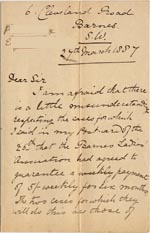 6. Cleveland Road
Barnes.
S.W.
27th March 1887
Dear Sir
I am afraid that there
is a little misunderstanding
respecting the cases for which
I said in my Postcard of the
25th that the Barnes Ladies'
Association had agreed to
guarantee a weekly payment
of 5/ weekly for six months
The two cases for which they
will do this are those of